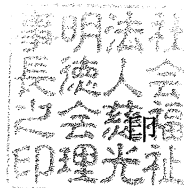 社会福祉
法人慈光
明徳会理
事長之印
印